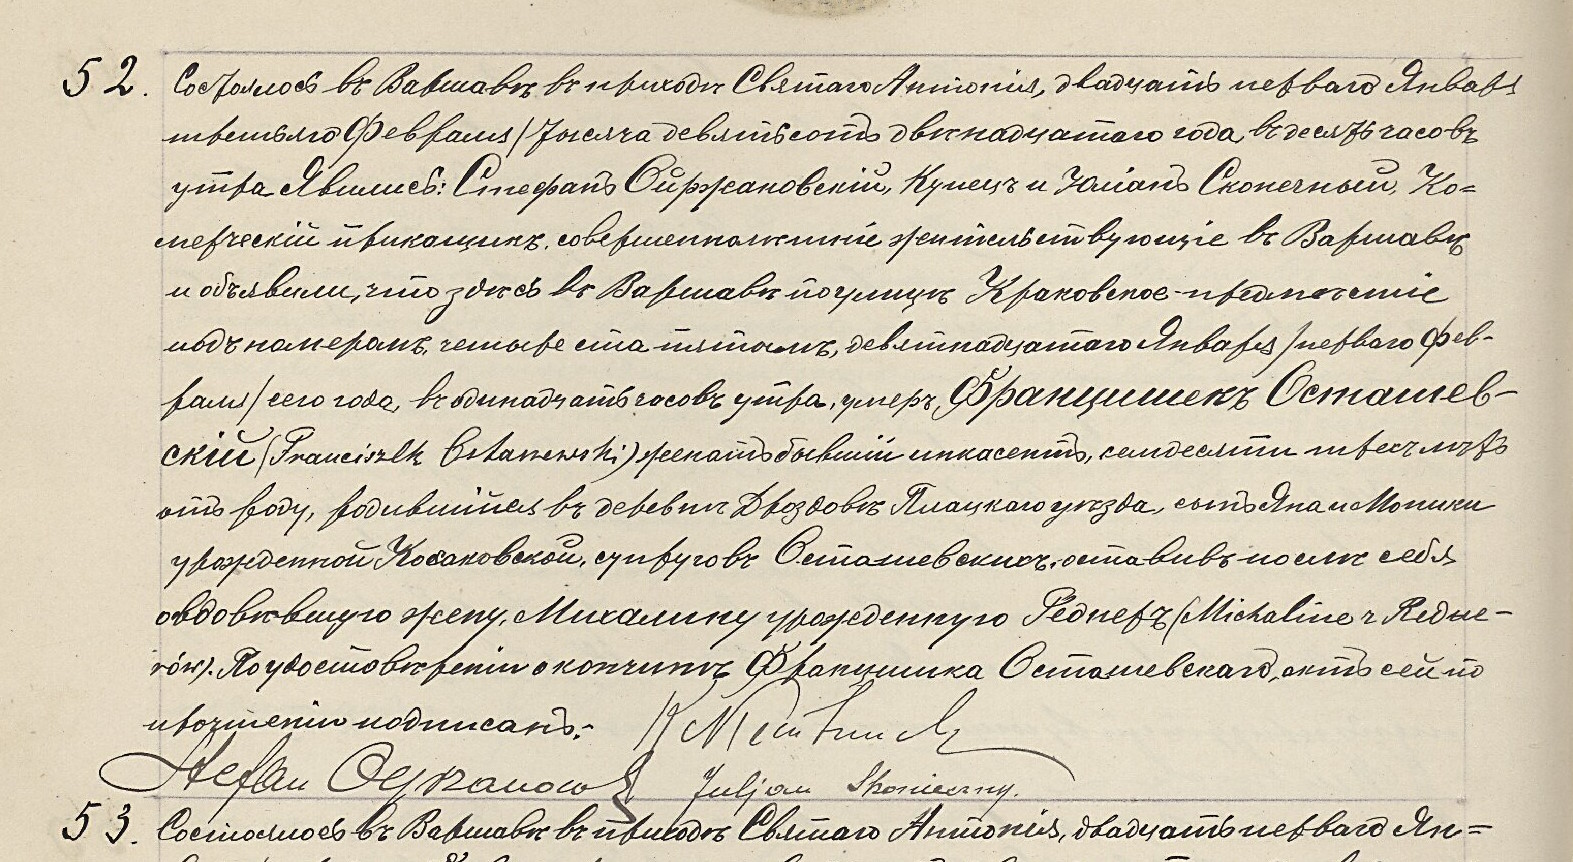 52. Состоялось въ Варшавѣ въ приходѣ Святаго Антонія, двадцать перваго Января
третьяго Февраля/тысяча девятьсотъ двѣнадцатаго года, въ десять часовъ
утра. Явились: Стефанъ Ойржановскій, Купецъ и Юліанъ Сконечный, Ко=
мерческій прикащикъ, совершеннолѣтніе жительствующіе въ Варшавѣ
и объявили, что здѣсь въ Варшавѣ по улицѣ Краковское-предмѣстіе
подъ номеромъ, четыреста пятымъ, девятнадцатаго Января/перваго Фев-
раля/сего года, въ одинадцать часовъ утра, умеръ, Францишекъ Осташев-
скій (Franciszek Ostaszewski) женатъ бывшій инкасентъ, семдесяти трехъ лѣтъ
отъ роду, родившійся въ деревнѣ Дроздовѣ Плоцкаго уѣзда, сынъ Яна и Моники
урожденной Косаковской, супруговъ Осташевскихъ, оставивъ послѣ себя
овдовѣвшую жену, Михалину урожденную Реднеръ (Michalinę z Redne-
rów). По удостовѣреніи о кончинѣ Францишка Осташевскаго, актъ сей по
прочтеніи подписанъ:-
Stefan Oyrzanowski Juljan Skonieczny.
53. Состоялось въ Варшавѣ въ приходѣ Святаго Антонія, двадцать перваго Ян=